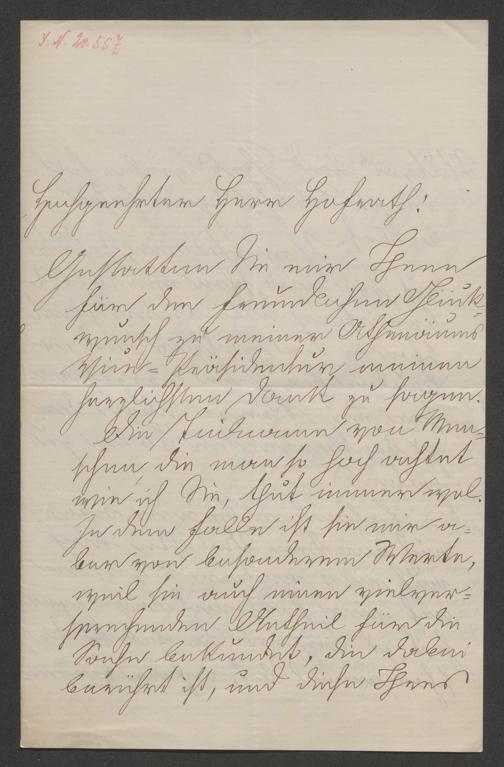 I. N. 20557
Hochgeehrter Herr Hofrath!
Gestatten Sie mir Ihnen
für den freundlichen Glück-
wunsch zu meiner Athenäums
Vice-Präsidentur meinen
herzlichsten Dank zu sagen.
Die Teilname von Men-
schen, die man so hoch achtet
wie ich Sie, thut immer wol.
In dem Falle ist sie mir a-
ber von besonderem Werte,
weil sie auch einen vielver-
sprechenden Antheil für die
Sache bekundet, die dabei
berührt ist, und diese Ihres